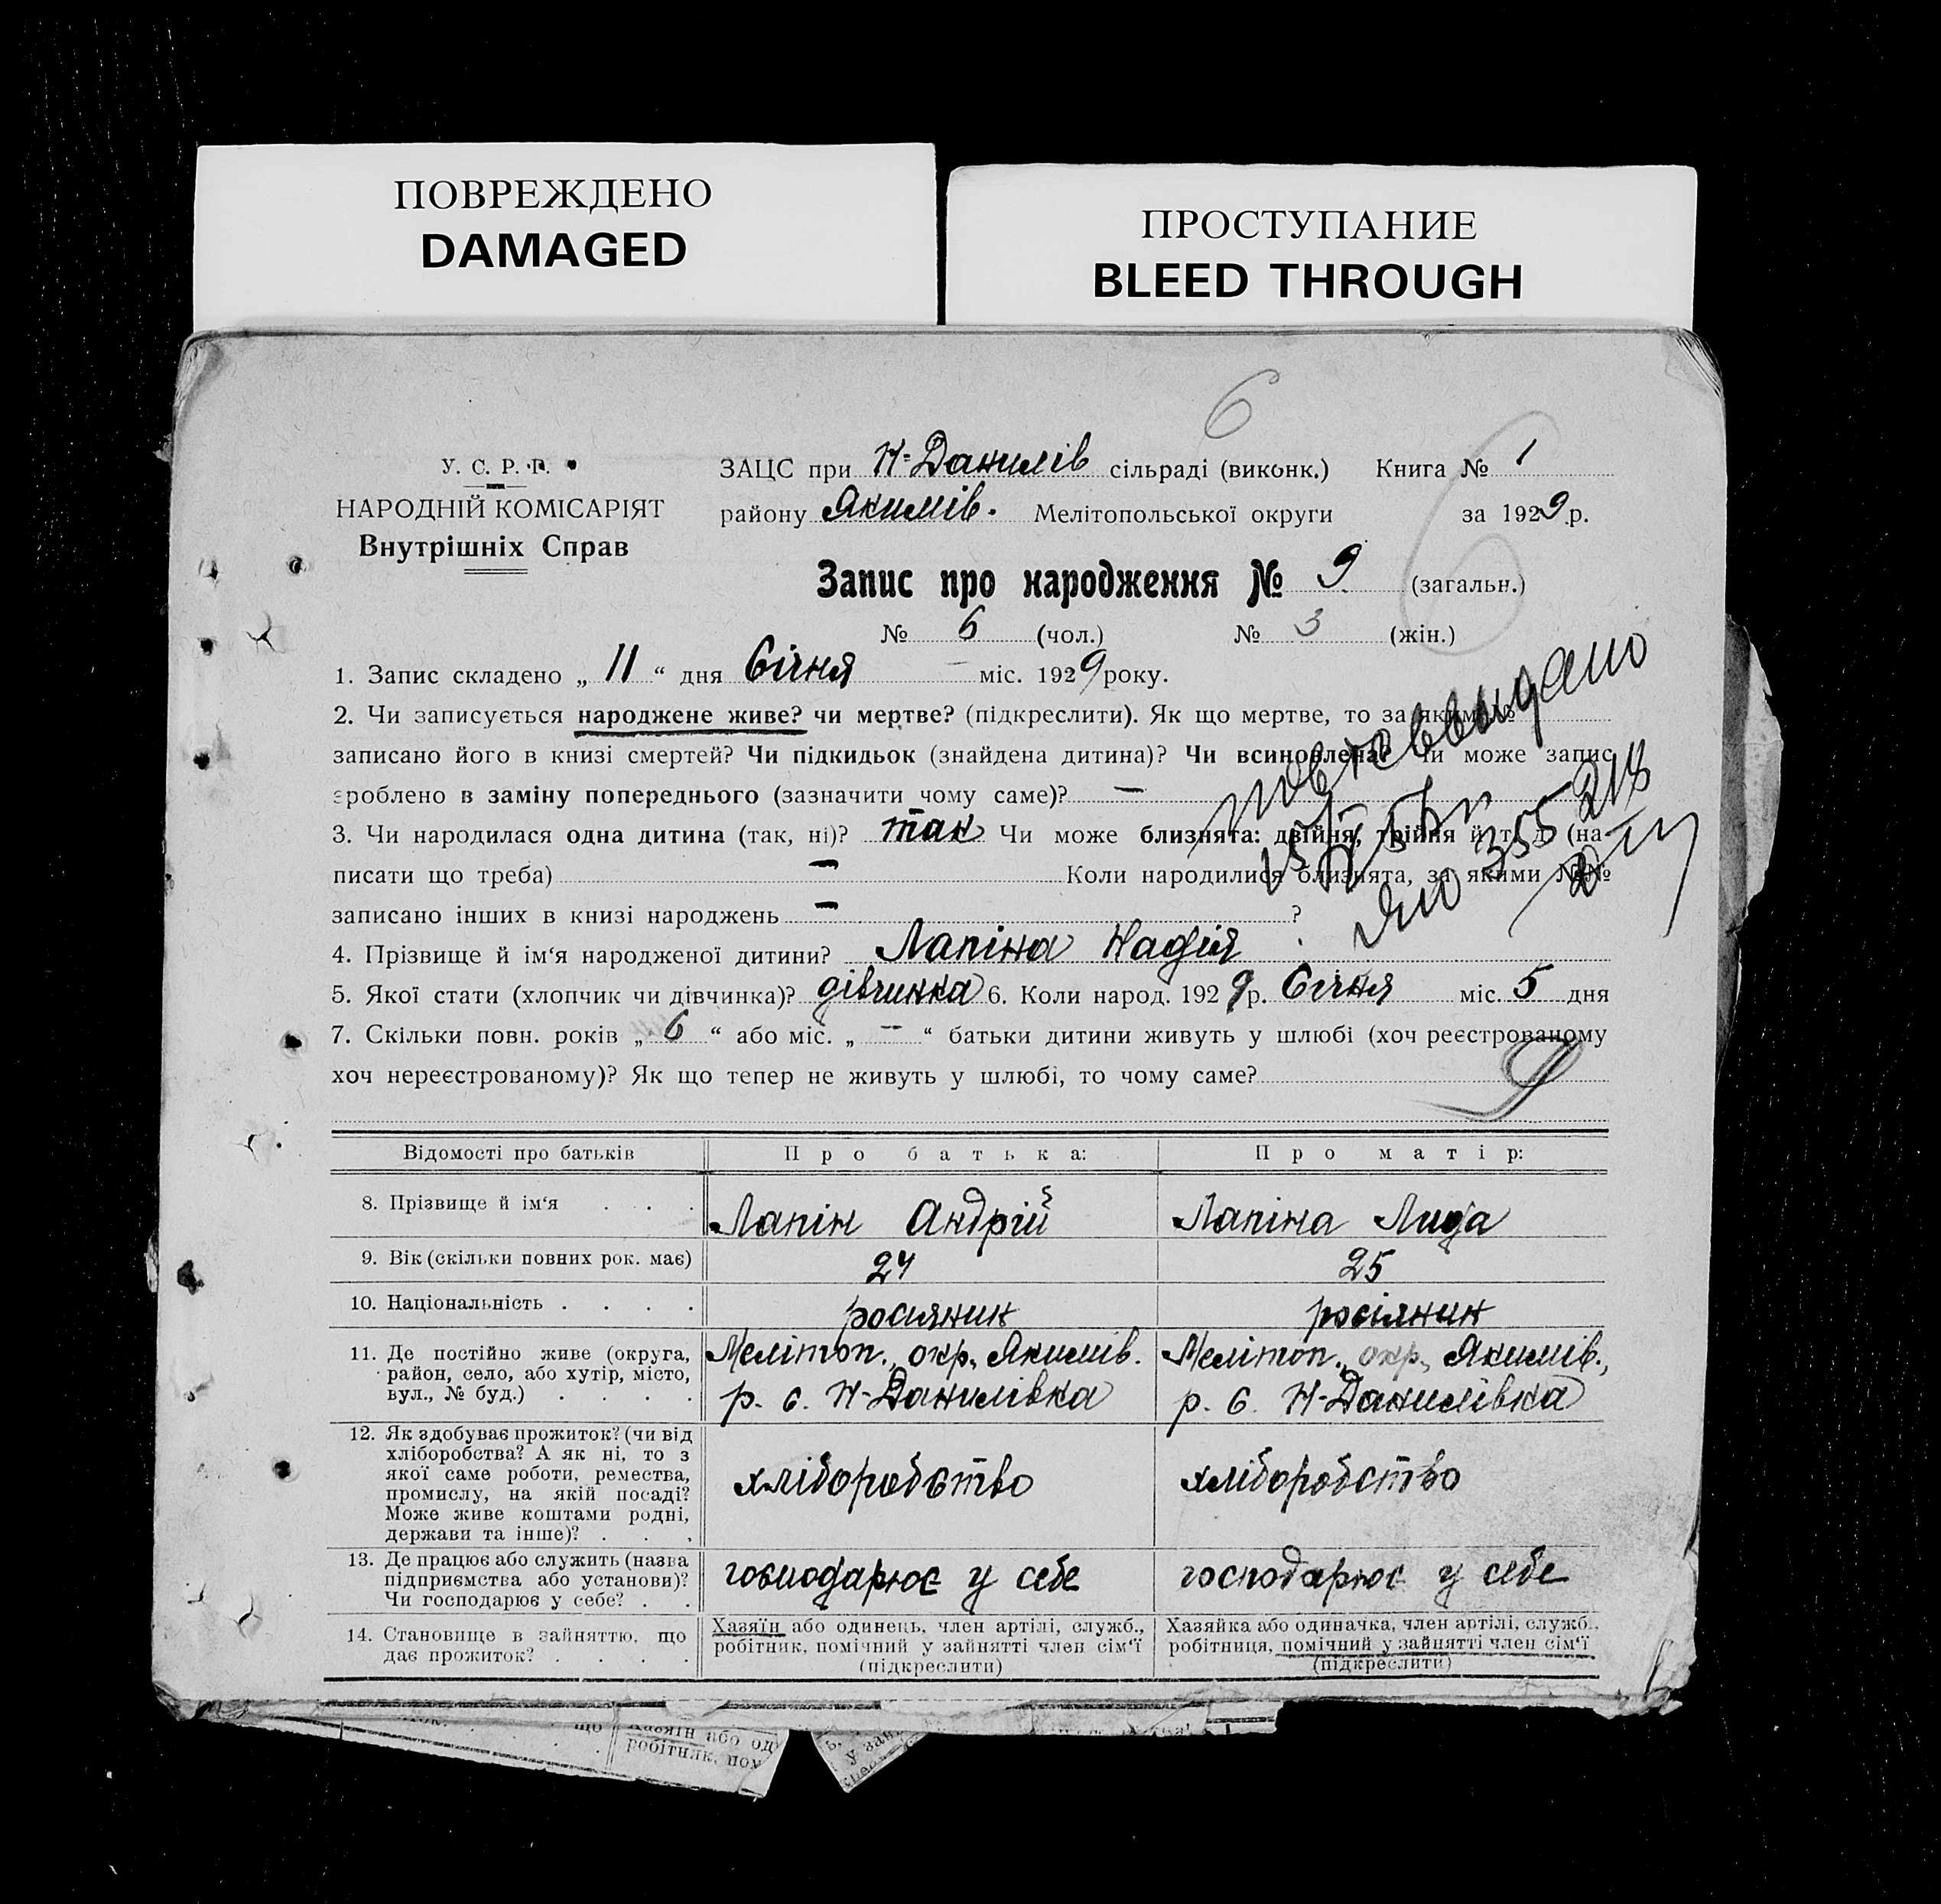 ПОВРЕЖДЕНО
DAMAGED
ПРОСТУПАНИЕ
BLEED THROUGH
6
У. С. Р. Р.
НАРОДНІЙ КОМІСАРІЯТ
Внутрішніх Справ
ЗАЦС при Н-Данилів сільраді (виконк.) Книга № 1
району Якимів. Мелітопольської округи за 1929 р.
6
Запис про народження № 9 (загальн.)
№ 6 (чол.) № 3 (жін.)
1. Запис складено „ 11 “ дня Січня міс. 1929 року.
2. Чи записується народжене живе? чи мертве? (підкреслити). Як що мертве, то за яким №
записано його в книзі смертей? Чи підкидьок (знайдена дитина)? Чи всиновлена? Чи може запис
зроблено в заміну попереднього (зазначити чому саме)? —
3. Чи народилася одна дитина (так, ні)? так Чи може близнята: двійня, трійня й т. д. (на-
писати що треба) — Коли народилися близнята, за якими №№
записано інших в книзі народжень — ?
355218
4. Прізвище й ім‘я народженої дитини? Лапіна Надія
5. Якої стати (хлопчик чи дівчинка)? дівчинка 6. Коли народ. 1929 р. Січня міс. 5 дня
7. Скільки повн. років „ 6 “ або міс. „ — “ батьки дитини живуть у шлюбі (хоч реєстрованому
хоч нереєстрованому)? Як що тепер не живуть у шлюбі, то чому саме?
9
Відомості про батьків Про батька: Про матір:
8. Прізвище й ім‘я . . . Лапін Андрій Лапіна Лида
9. Вік (скільки повних рок. має) 24 25
10. Національність . . . . росіянин росіянин
11. Де постійно живе (округа,
район, село, або хутір, місто,
вул., № буд.) . . . .
Меліт оп., окр., Якимів.
р. с. Н-Данилівка
Мелітоп., окр., Якимів.,
р. с. Н-Данилівка
12. Як здобуває прожиток? (чи від
хліборобства? А як ні, то з
якої саме роботи, ремества,
промислу, на якій посаді?
Може живе коштами родні,
держави та інше)? . . .
хліборобство
хліборобство
13. Де працює або служить (назва
підприємства або установи)?
Чи господарює у себе? . .
господарює у себе
господарює у себе
14. Становище в зайняттю, що
дає прожиток? . . . .
Хазяїн або одинець, член артілі, служб.,
робітник, помічний у зайнятті член сім‘ї
(підкреслити)
Хазяйка або одиначка, член артілі, служб.,
робітниця, помічний у зайнятті член сім‘ї
(підкреслити)
що
Хазяїн або од
робітник, пом
у зан